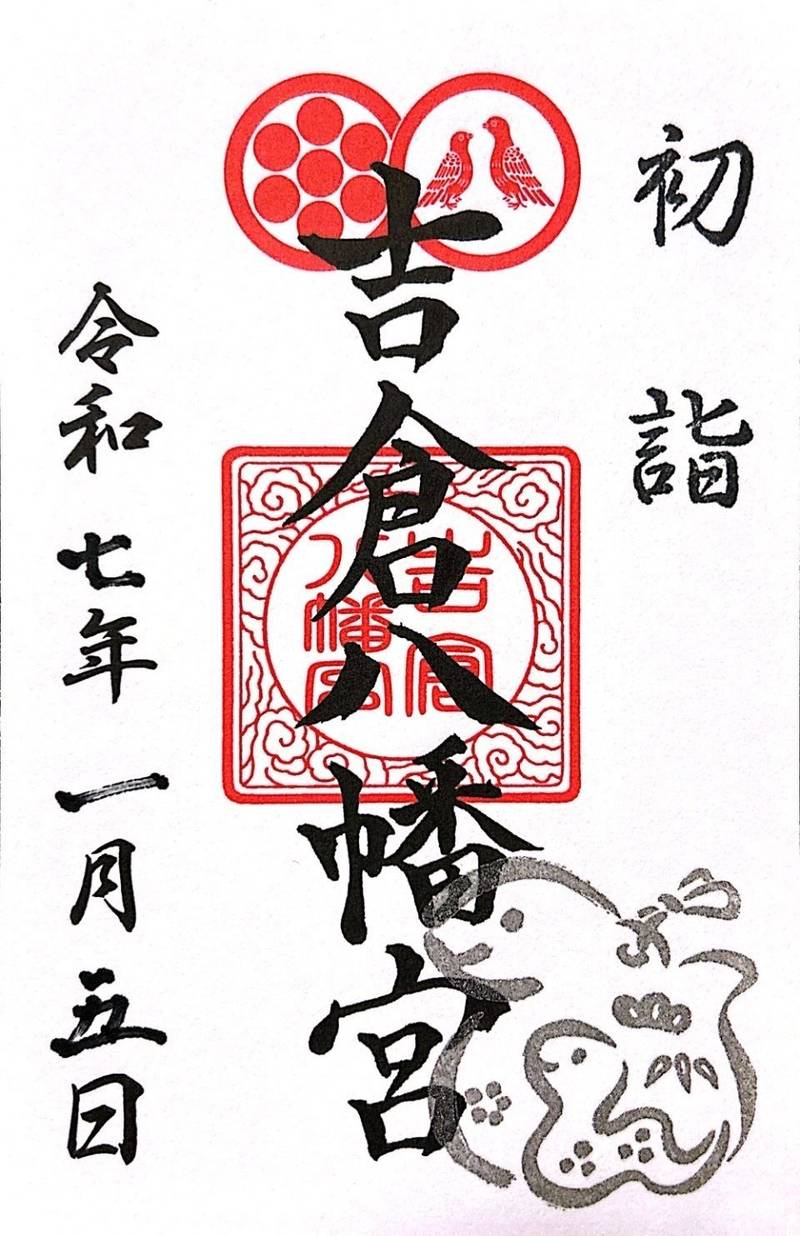 初詣
吉倉八幡宮
吉倉
八幡宮
令和七年一月五日